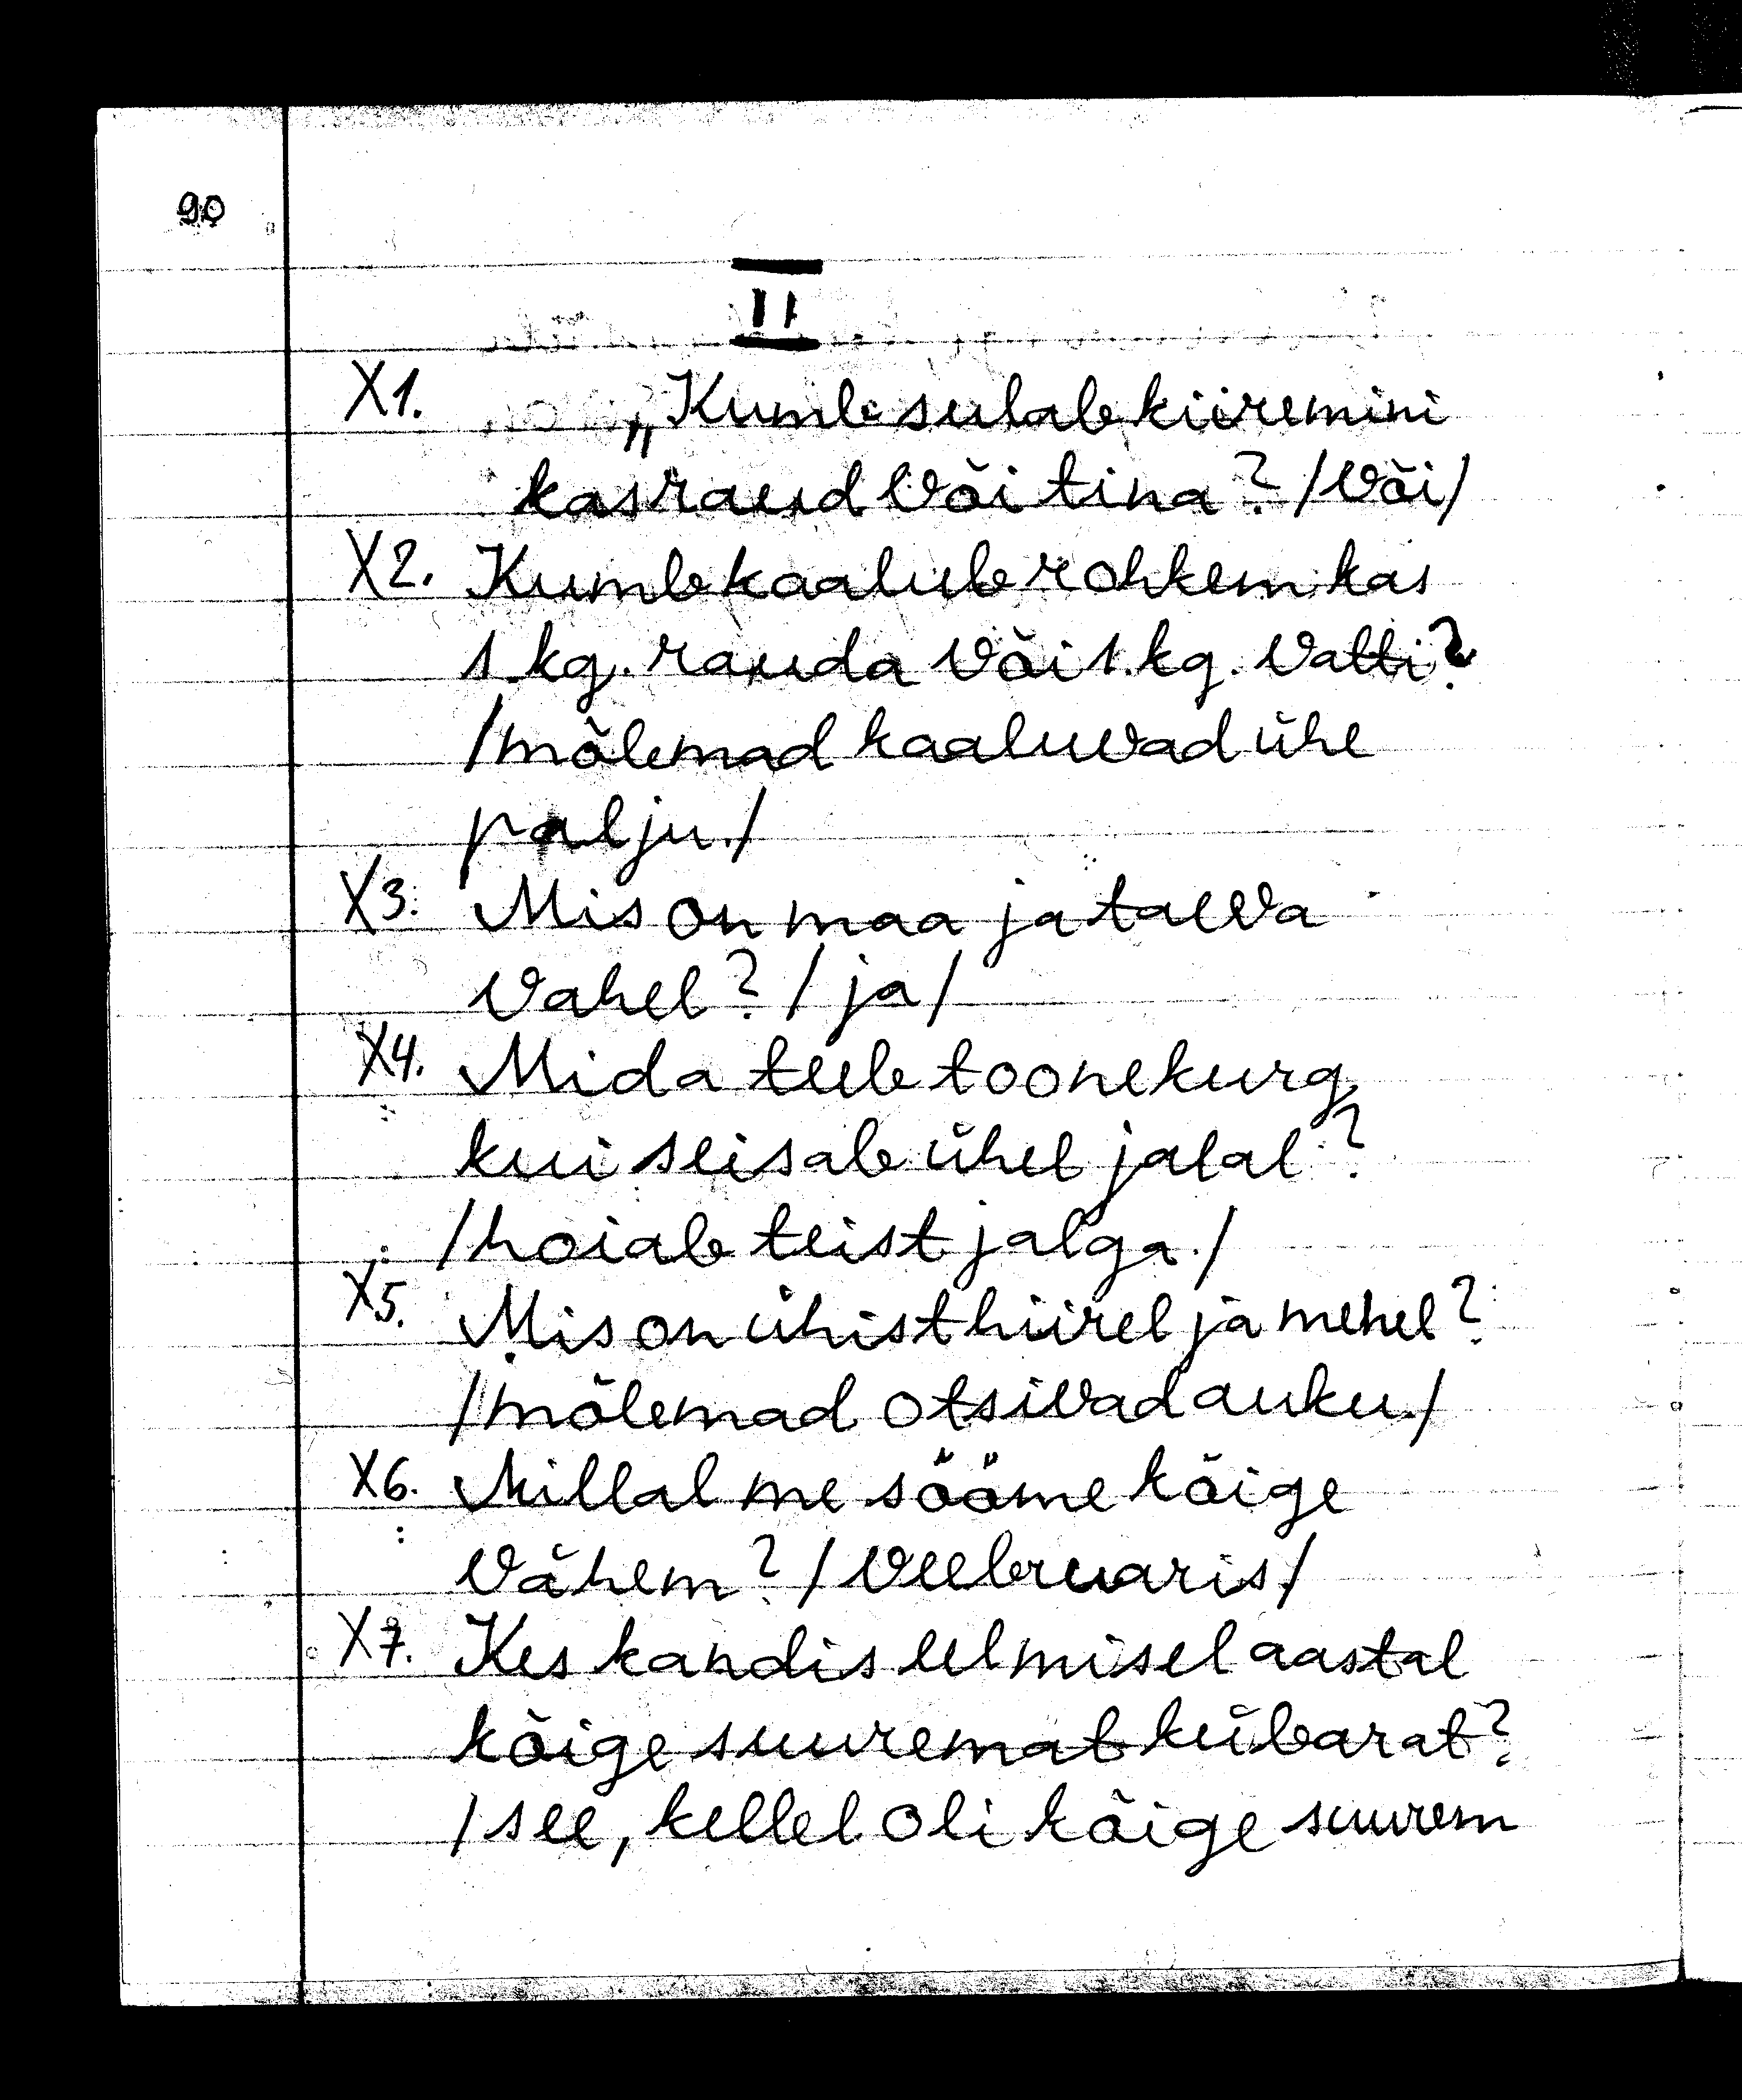 90
II
X1. „Kumb sulab kiiremini
kas raud või tina? /Või/
X2. Kumb kaalub rohkem kas
1 kg. rauda või 1. kg. vatti?
/mõlemad kaaluvad ühe
palju./
X3. Mis on maa ja taeva
vahel? /ja/
X4. Mida teeb toonekurg
kui seisab ühel jalal?
/hoiab teist jalga./
X5. Mis on ühist hiirel ja mehel?
/mõlemad otsivad auku./
X6. Millal me sööme kõige
vähem? /Veebruaris./
X7. Kes kandis eelmisel aastal
kõige suuremat kübarat?
/see, kellel oli kõige suurem